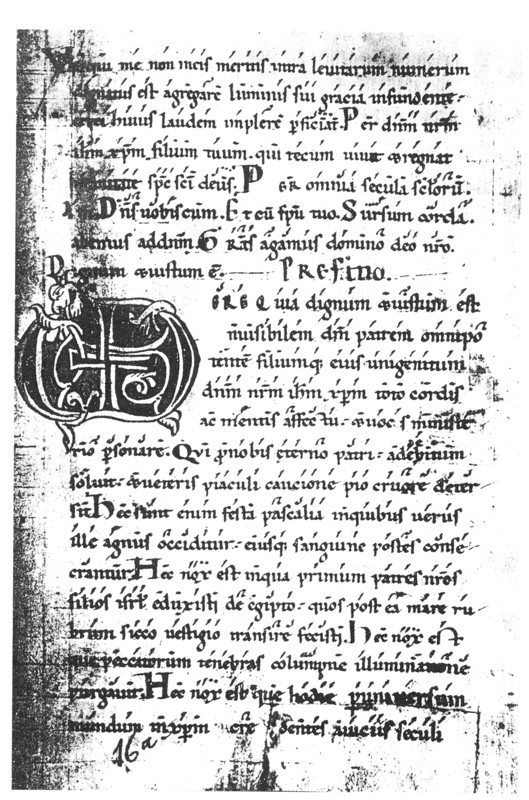 me non meis meritis intra levitarum numerum
dignatus est agregare luminis sui gracia infundente
huius laudem implere pficiat. Per dnm nrm
ihm xpm filium tuum. qui tecum vivit & regnat
spc sci deus. P er omnia secula sclorum.
Dns uobiscum. Et cu spu tuo. Sursum corda.
abemus addnm. Gras agamus domino deo nro.
Dignum & iustum e.
ERE Quia dignum & iustum est
invisibilem dm patrem omnipo
tente filiumq eius unigenitum
dnm nrm ihm xpm toto cordis
ac mentis affectu & uocis ministe
rio psonare. Qui pnobis eterno patri adebitum
soluit & ueteris piaculi caucione pio cruore deter
sit. Hec sunt enim festa pascalia inquibus uerus
ille agnus occiditur eiusq sanguine postes conse
crantur. Hec nox est inqua primum patres nros
filios isrl eduxisti de egipto quos post ea mare ru
brum sicco uestigio transire fecisti. Hec nox est
que peccatorum tenebras columpne illuminatione
purgauit. Hec nox est que hodie p uniuersum
mundum inxpm cre dentes auiciis seculi
16a